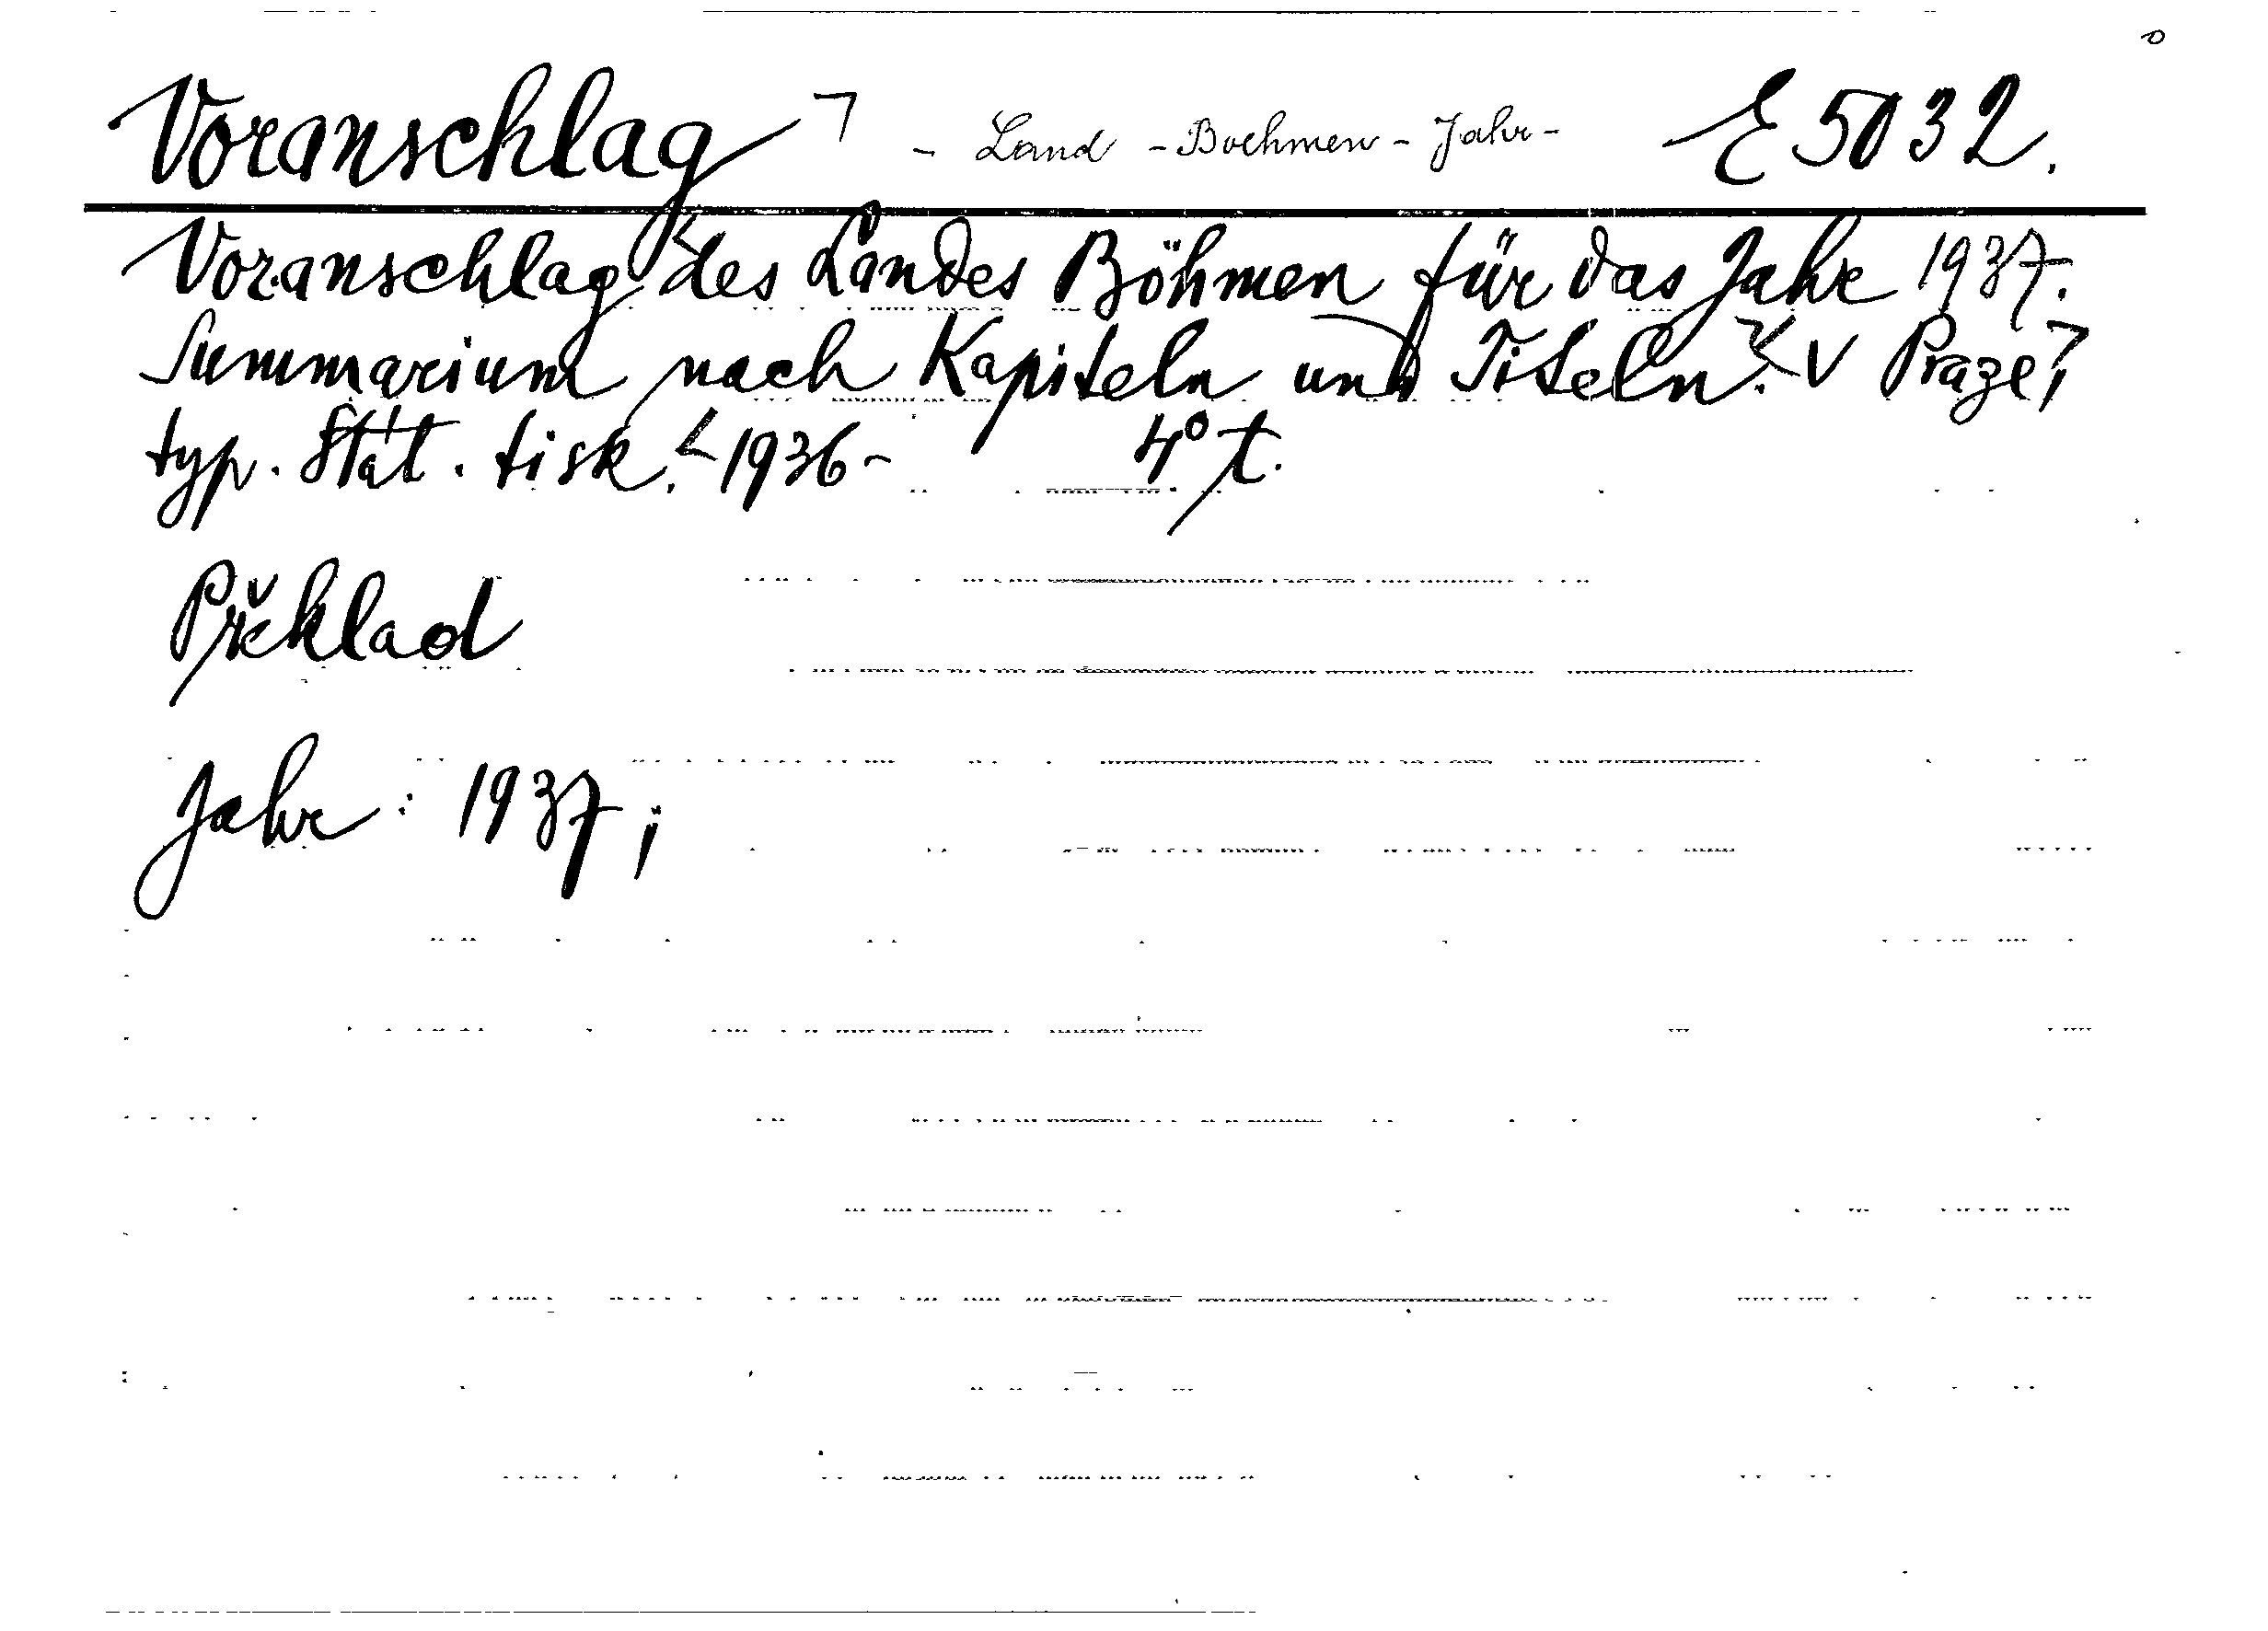 Voranschlag - Land - Boehmen - Jahr - E 5032.
Voranschlag des Landes Böhmen für das Jahr 1937.
Summarium nach Kapiteln und Titeln. V Praze,
typ. Stát. tisk. 1936- 4° t.
Překlad
Jahr: 1937;